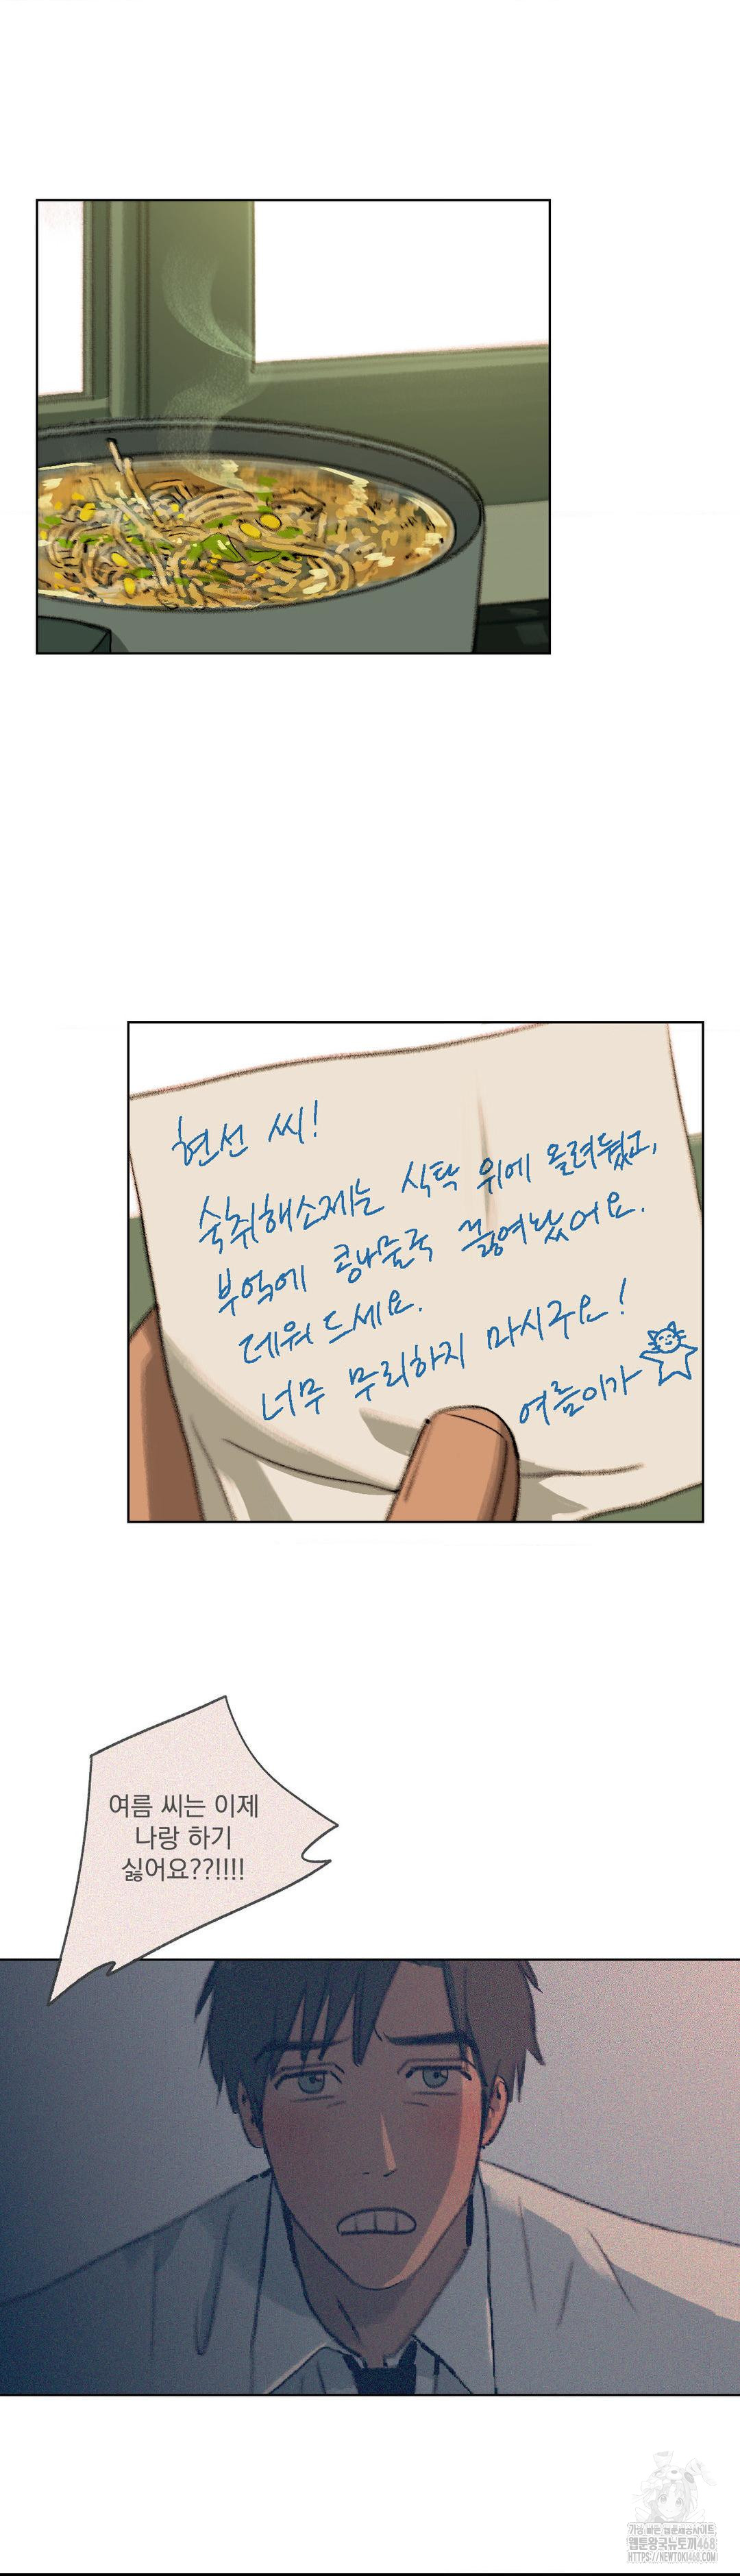 현선 씨!
숙취해소제는 식탁 위에 올려뒀고,
부엌에 콩나물국 끓여놨어요.
데워 드세요.
너무 무리하지 마시구요!
여름이가
여름 씨는 이제
나랑 하기
싫어요??!!!!
웹툰왕국뉴토끼468
HTTPS://NEWTOKI468.COM